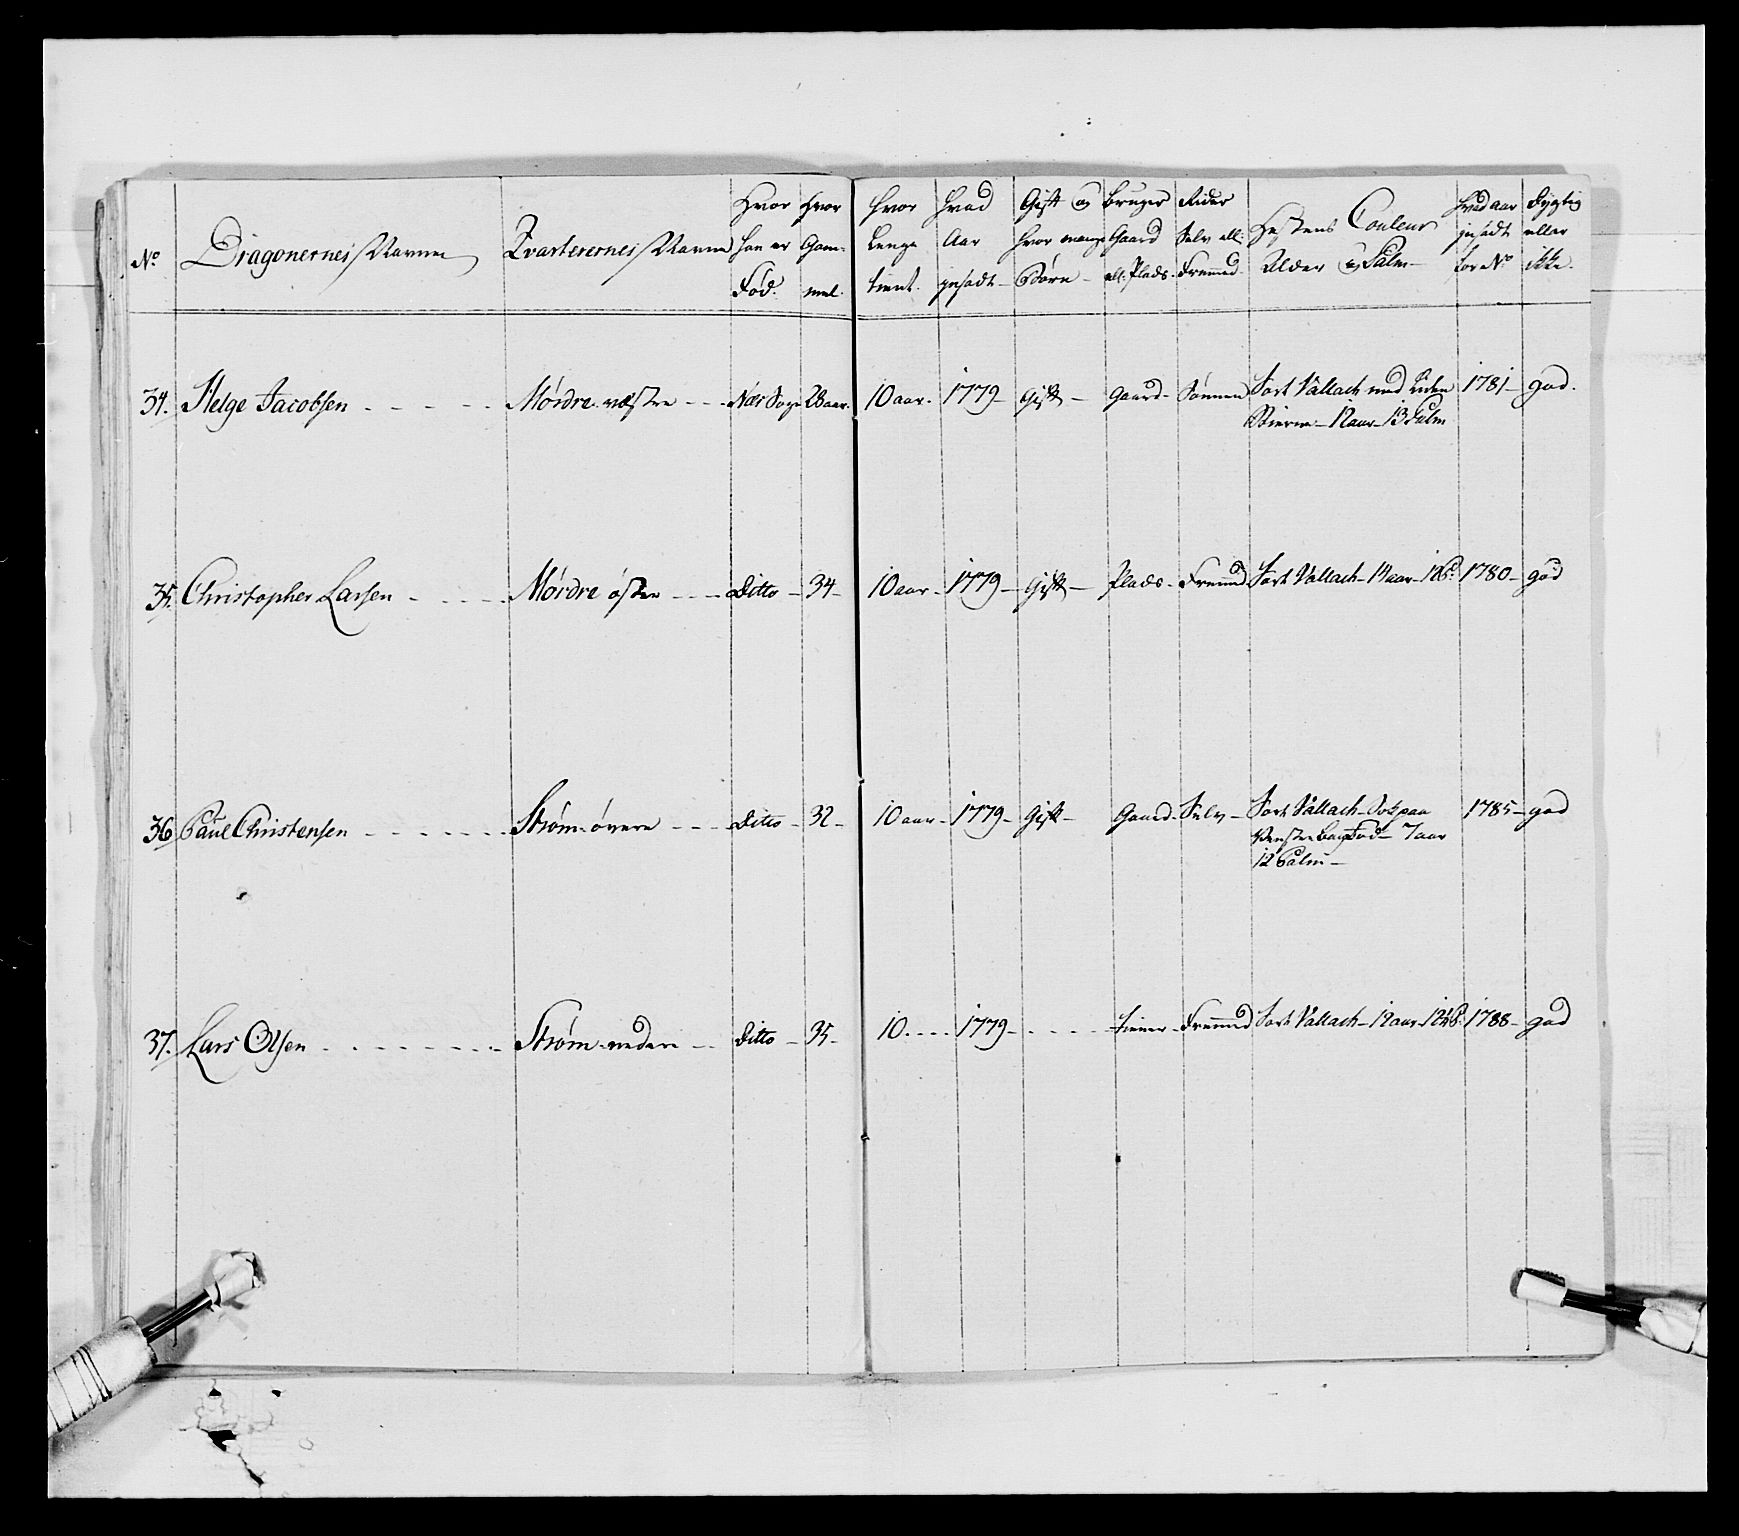 No. Dragonernes Navne Qvarterernes Navne Hvor han er Fød. Hvor Gam- mel. Hvor Lenge tient. Hvad Aar ansadt Gift og hvor mange Børn Bruger Gaard ell: Plads. Rider Selv ell: Fremmed. Hestens Couleur Alder og Palm Hvad aar ansadt for No. Dygtig eller ikke.
34. Helge Jacobsen Mørdre vestre Næs Sogn 28 aar. 10 aar. 1779 Gift Gaard Sønnen Sort Vallach med Liden 1781 god.
Stierne 12 aar 13 Palm
35. Christopher Larsen Mørdre østre Ditto 34 10 aar 1779 Gift Plads Fremmed Sort Vallach 14 aar 1780 god
36 Paul Christensen Strøm øvere Ditto 32 10 aar 1779 Gift Gaard Selv Sort Vallach Sok paa 1785 god
Venstre bag Fod 7 aar
12 Palm
37. Lars Olsen Strøm nedere Ditto 35 10 1779 tiener Fremmed Sort Vallach 12 aar 1788 god